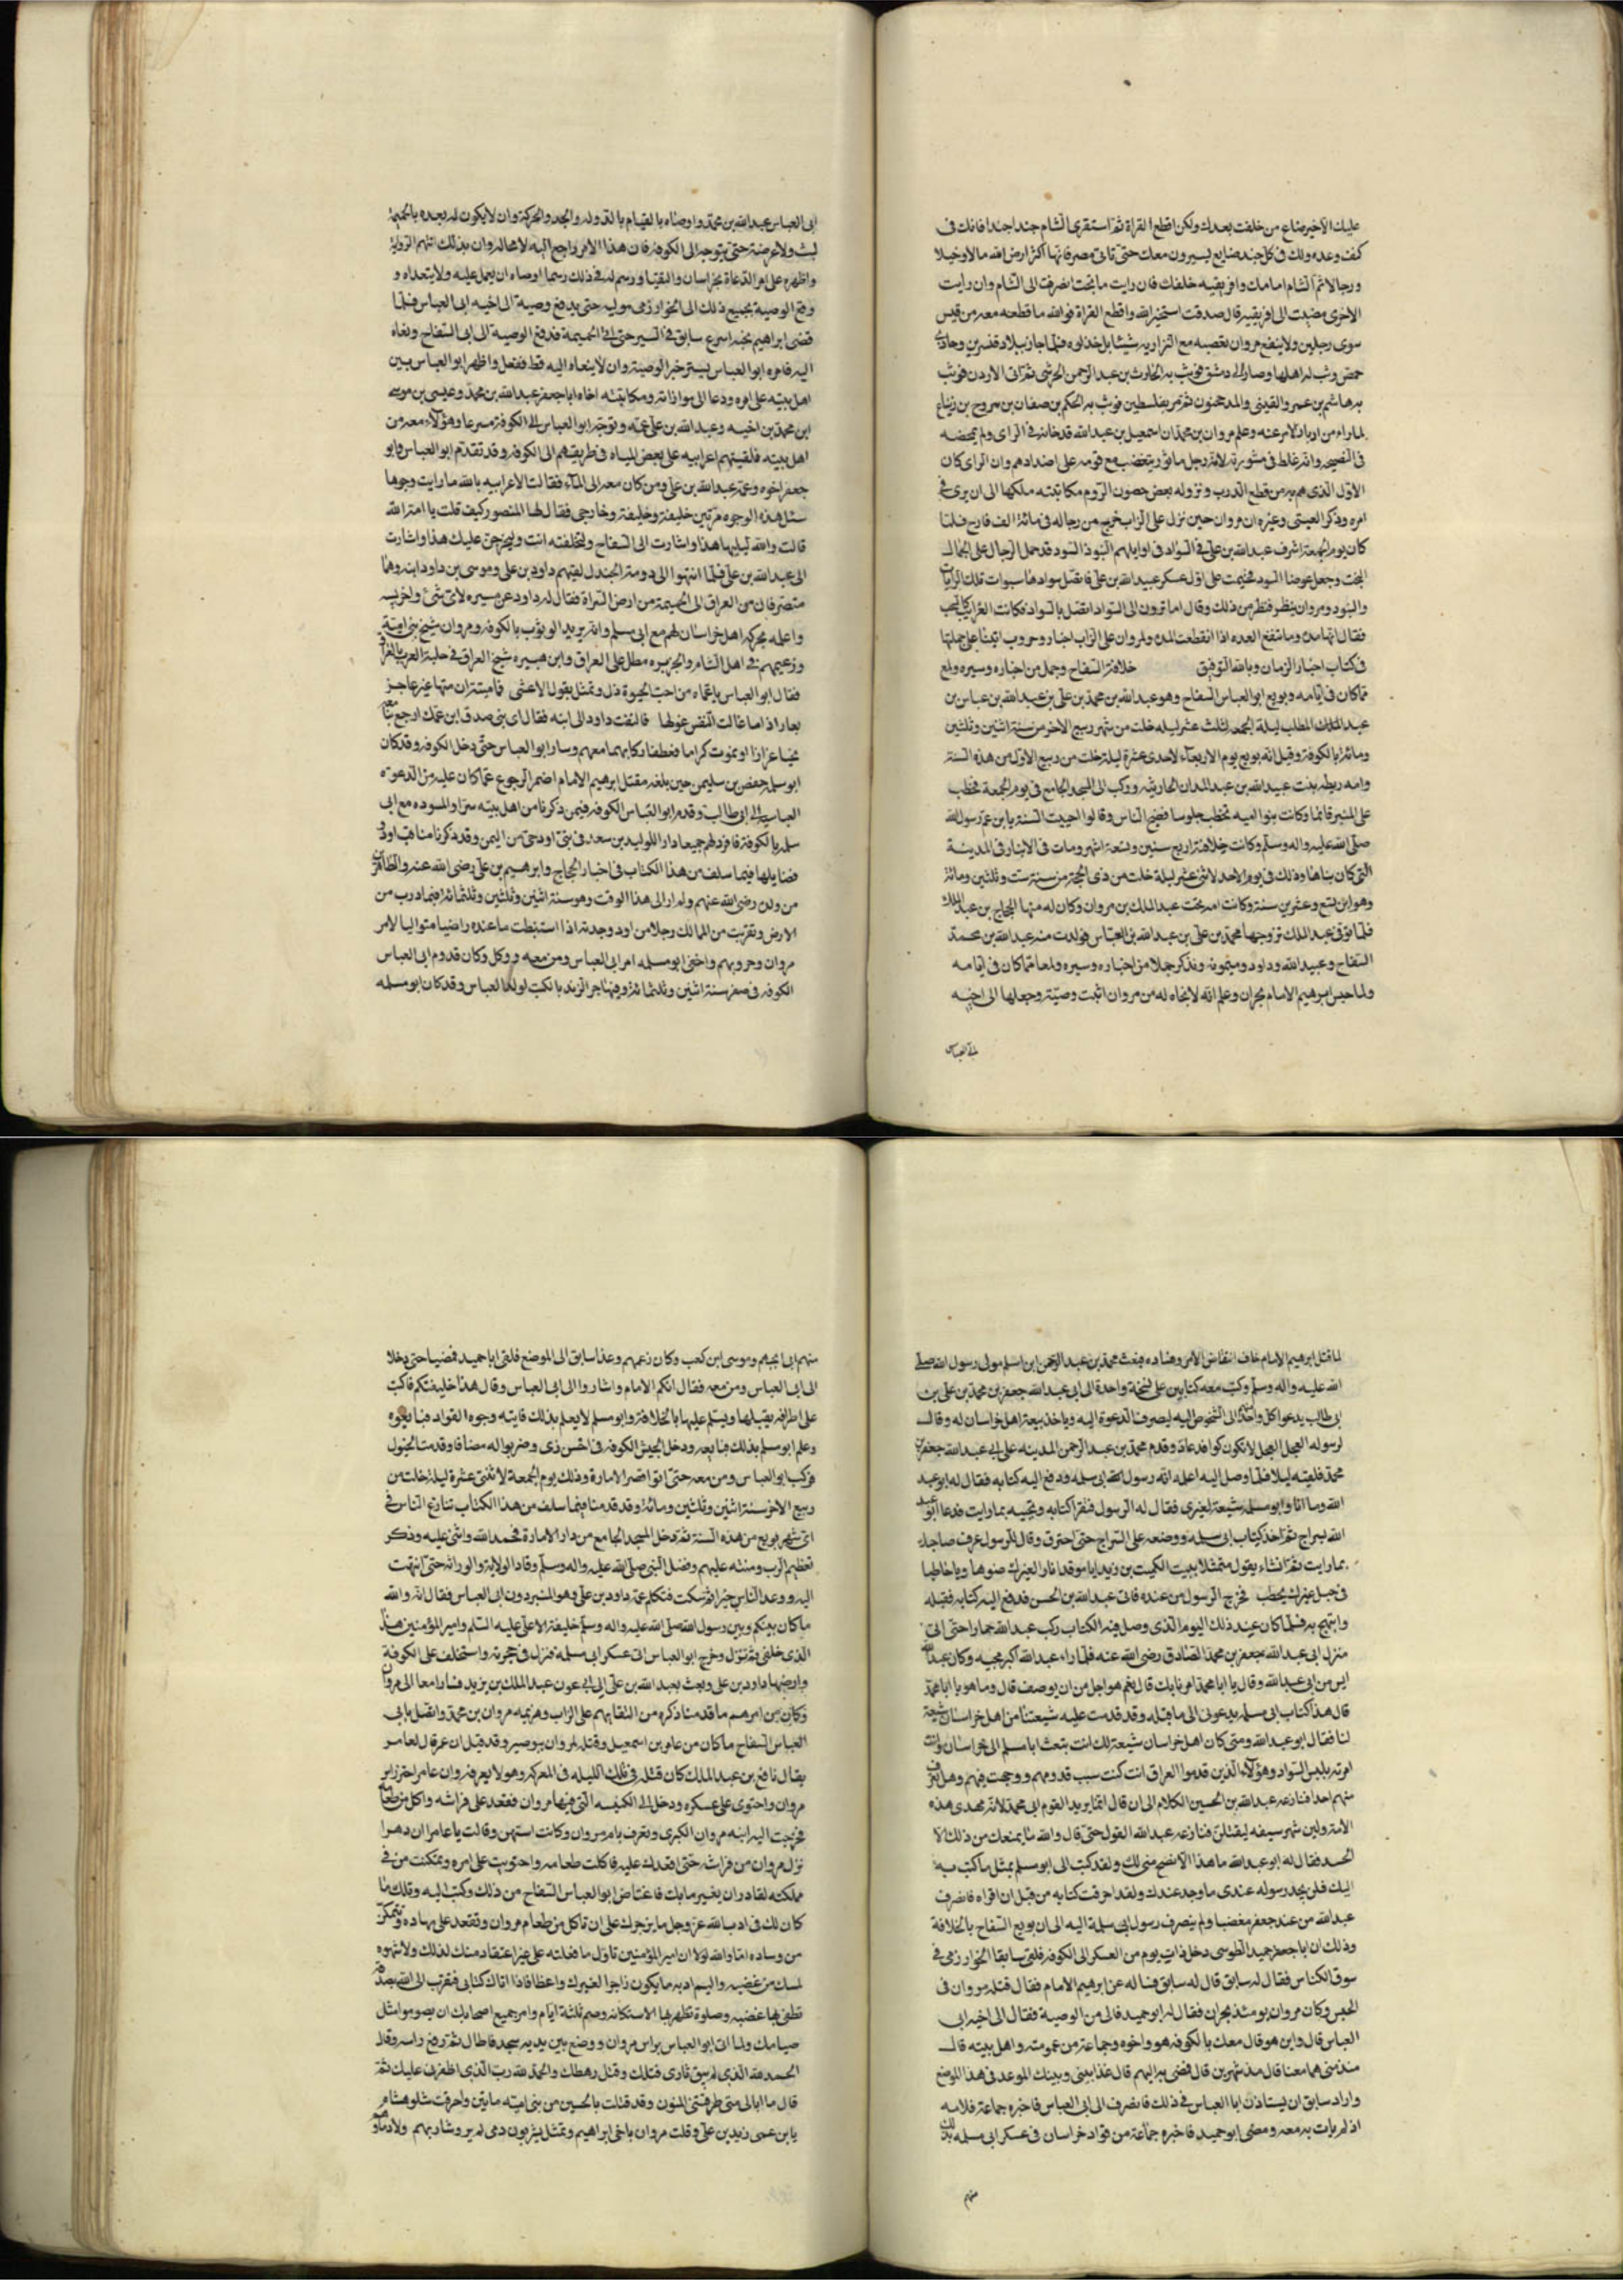 عليك الاخير ضاع من خلفت بعدك ولكن اقطع الفراة ثم استقرى الشام جندا جندا فانك فى
كنف وعده ولك فى كل جند صنايع يسيرون معك حتى تاتى مصر فانها اكثر ارض الله مالا وخيلا
ورجالا ثم الشام امامك وافريقيه خلفك فان رايت ما تحب انصرفت الى الشام وان رايت
الاخرى مضيت الى افريقيه قال صدقت استخير الله واقطع الفراة فوالله ما قطعه معه من قيس
سوى رجلين ولا ينفع مروان تعصبه مع النزاريه شيئا بل خذلوه فلما جاز ببلاد قنسرين وحاذى
حمص وثب له اهلها وصار الى دمشق فوثب به الحارث بن عبد الرحمن الحرشى ثم اتى الاردن فوثب
به هاشم بن عمر والقينى والمدحجون ثم مر بفلسطين فوثب به الحكم بن صفان بن روح بن زنباع
لما راه من ادبار الامر عنه وعلم مروان بن محمد ان اسمعيل بن عبد الله قد خانه فى الراى ولم يمحضه
فى النصيحه وانه غلط فى مشورته لانه رجل ماثور يتعصب مع قومه على اضدادهم وان الراى كان
الاول الذى هم به من قطع الدرب ونزوله بعض حصون الروم مكاتبته ملكها الى ان يرى فى
امره وذكر العيسى وغيره ان مروان حين نزل على الزاب خرج من رجاله فى مائة الف فارس فلما
كان يوم الجمعة اشرف عبد الله بن على فى السواد فى اوايلهم البنود السود قد حمل الرجال على الجمال
البخت وجعل عوضا السود فخيمت على اول عسكر عبيد الله بن على فاتصل سوادها بسوات تلك الرايات
والبنود ومروان ينظر فتطير من ذلك وقال اما ترون الى السواد اتصل بالسواد فكانت الغرابيب كالسحب
فقال انها مدة وما تنفع العده اذا انقطعت المده ولمروان على الزاب اخبار وحروب اتينا على جملتها
فى كتاب اخبار الزمان وبالله التوفيق خلافة السفاح وجمل من اخباره وسيره ولمع
مما كان فى ايامه وبويع ابو العباس السفاح وهو عبد الله بن محمد بن على بن عبد الله بن عباس بن
عبد المطلب ليلة الجمعة لثلث عشر ليله خلت من شهر ربيع الاخر من سنة اثنين وثلثين
ومائة بالكوفة وقيل انه بويع يوم الاربعاء لاحدى عشرة ليلة خلت من ربيع الاول من هذه السنة
وامه ريطه بنت عبيد الله بن عبد المدان الحارثيه وركب الى المسجد الجامع فى يوم الجمعة فخطب
على المنبر قائما وكانت بنوا اميه تخطب جلوسا فضج الناس وقالوا احييت السنة يا بن عم رسول الله
صلى الله عليه واله وسلم وكانت خلافته اربع سنين وتسعة اشهر ومات فى الانبار فى المدينة
التى كان بناها وذلك فى يوم الاحد لاثنى عشر ليلة خلت من ذى الحجة من سنة ست وثلثين ومائة
وهو ابن تسع وعشرين سنة وكانت امه تحت عبد الملك بن مروان وكان له منها الحجاج بن عبد الملك
فلما توفى عبد الملك تزوجها محمد بن على بن عبد الله بن العباس فولدت منه عبد الله بن محمد
السفاح وعبيد الله وداود وميمونه ونذكر جملا من اخباره وسيره ولمعا مما كان فى ايامه
ولما حبس ابرهيم الامام بحران وعلم انه لا نجاه له من مروان اثبت وصيته وجعلها الى اخيه
ابى العباس
ابى العباس عبد الله بن محمد واوصاه بالقيام بالدوله والجد والحركة وان لا يكون له بعده بالحميمة
لبث ولا عرضة حتى يتوجه الى الكوفه فان هذا الامر راجع اليه لا محاله وان بذلك اتتهم الرواية
واظهره على امر الدعاة بخراسان والنقبا ورسم له فى ذلك رسما اوصاه ان يعمل عليه ولا يتعداه و
دفع الوصية بجميع ذلك الى الخوارزمى موليه حتى يدفع وصية الى اخيه ابى العباس فلما
قضى ابراهيم نحبه اسرع سابق فى السير حتى اتى الحميمة فدفع الوصية الى ابى السفاح ونعاه
اليه فامره ابو العباس بستر خبر الوصية وان لا ينعاه اليه قط ففعل واظهر ابو العباس بين
اهل بيته على امره ودعا الى موازاته ومكاتبته اخاه ابا جعفر عبد الله بن محمد وعيسى بن موسى
ابن محمد بن اخيه وعبد الله بن على عمه وتوجه ابو العباس الى الكوفه مسرعا وهؤلاء معه من
اهل بيته فلقيتهم اعرابيه على بعض المياه فى طريقهم الى الكوفه وقد تقدم ابو العباس وابو
جعفر اخوه وعمه عبد الله بن على ومن كان معه الى الماء فقالت الاعرابيه بالله ما رايت وجوها
مثل هذه الوجوه مرتين خليفة وخليفة وخارجى فقال لها المنصور كيف قلت يا امة الله
قالت والله ليليها هذا واشارت الى السفاح ولتخلفنه انت وليخرجن عليك هذا واشارت
الى عبد الله بن على فلما انتهوا الى دومة الجندل لقيهم داود بن على وموسى بن داود ابنه وهما
منصرفان من العراق الى الحميمة من ارض الشراة فقال له داود عن مسيره لاى شئ واخر به
واعلمه بحركة اهل خراسان لهم مع ابى مسلم وانه يريد الوثوب بالكوفه ومروان شيخ بنى امية
وزعيمهم فى اهل الشام والجزيره مطل على العراق وابن هبيره شيخ العراق فى حلبة العرب بالعراق
فقال ابو العباس يا عماه من احب الحيوة ذل وتمثل بقول الاعشى فامتتة ان متها غير عاجز
بعار اذا ما غالت النفس غولها فالتفت داود الى ابنه فقال اى بنى صدق ابن عمك ارجع بنا معه
نحيا عزازا او نموت كراما فعطفا ركابهما معهم وسار ابو العباس حتى دخل الكوفه وقد كان
ابو سلمه حفص بن سليمن حين بلغه مقتل ابرهيم الامام اضمر الرجوع عما كان عليه من الدعوة
العباسيه الى ال ابى طالب وقدم ابو العباس الكوفه فيمن ذكرنا من اهل بيته سرا والمسوده مع ابى
سلمه بالكوفة فانزلهم جميعا دار الوليد بن سعد فى بنى اود حى من اليمن وقد ذكرنا مناقب اود و
فضايلها فيما سلف من هذا الكتاب فى اخبار الحجاج وابرهيم بن على رضى الله عنه والطاهرين
من ولده رضى الله عنهم ولم ار الى هذا الوقت وهو سنة اثنين وثلثين وثلثمائة فيما درت من
الارض وتقربت من الممالك رجلا من اود وجدته اذا استنبطت ما عنده راضيا متواليا لامر
مروان وحروبهم واخفى ابو سلمه امر ابى العباس ومن معه ووكل وكان قدوم ابى العباس
الكوفه فى صفر سنة اثنين وثلثمائة وفيها جر الزند بالكتب لولد العباس وقد كان ابو مسلمه
لما قتل ابرهيم الامام خاف انتقاض الامر وفساده فبعث محمد بن عبد الرحمن ابن اسلم مولى رسول الله صلى
الله عليه واله وسلم وكتب معه كتابين على نسخة واحدة الى ابى عبد الله جعفر بن محمد بن على بن
ابى طالب يدعوا كل واحد الى الشخوص اليه ليصرف الدعوة اليه وياخذ بيعة اهل خراسان له وقال
لرسوله العجل العجل لا تكون كوافد عاد وقدم محمد بن عبد الرحمن المدينه على ابى عبد الله جعفر بن
محمد فلقيه ليلا فلما وصل اليه اعلمه انه رسول الى ابى سلمه ودفع اليه كتابه فقال له ابو عبد
الله وما انا وابو مسلمه شيعة لغيرى فقال له الرسول فتقرا كتابه وتجيبه بما رايت فدعا ابو عبد
الله بسراج ثم اخذ كتاب ابى سلمه ووضعه على السراج حتى احترق وقال للرسول عرف صاحبك
بما رايت ثم انشاء يقول متمثلا ببيت الكميت بن زيد ايا موقدا نارا لغيرك ضوءها ويا خاطبا
فى حبل غيرك يحطب فخرج الرسول من عنده فاتى عبد الله بن الحسن فدفع اليه كتابه فقبله
وابتهج به فلما كان عند ذلك اليوم الذى وصل فيه الكتاب ركب عبد الله حمارا حتى اتى
منزل ابى عبد الله جعفر بن محمد الصادق رضى الله عنه فلما راه عبد الله اكبر مجيه وكان عبد الله
اسن من ابى عبد الله وقال يا ابا محمد امر ما بك قال نعم هو اجل من ان يوصف قال وما هو يا ابا محمد
قال هذا كتاب ابى سلمه يدعونى الى ما يقبله وقد قدمت عليه شيعتنا من اهل خراسان شيعة
لنا فقال ابو عبد الله ومتى كان اهل خراسان شيعة لك انت بعثت ابا مسلم الى خراسان وانت
امرته بلبس السواد وهؤلاء الذين قدموا العراق انت كنت سبب قدومهم ووجهت فيهم وهل تعرف
منهم احدا فنازعه عبد الله بن الحسين الكلام الى ان قال انما يريد القوم ابى محمد لانه مهدى هذه
الامة ولين شهر سيفه ليقتلن فنازعه عبد الله القول حتى قال والله ما يمنعك من ذلك الا
الحسد فقال له ابو عبد الله ما هذا الا نصح منى لك ولقد كتب الى ابو مسلم بمثل ما كتب به
اليك فلن يجد رسوله عندى ما وجد عندك ولقد احرقت كتابه من قبل ان اقراه فانصرف
عبد الله من عند جعفر مغضبا ولم ينصرف رسول ابى سلمة اليه الى ان بويع السفاح بالخلافة
وذلك ان ابا جعفر حميد الطوسى دخل ذات يوم من العسكر الى الكوفه فلقى سابقا الخوارزمى فى
سوق الكناس فقال له سابق قال له سابق فساله عن ابرهيم الامام فقال قتله مروان فى
الحبس وكان مروان يومئذ بحران فقال له ابو حميد فالى من الوصية فقال الى اخيه ابى
العباس قال واين هو قال معك بالكوفه هو واخوه وجماعة من عمومته واهل بيته قال
مذ متى هم معنا قال مذ شهرين قال فمضى بنا اليهم قال غدا بينى وبينك الموعد فى هذا الموضع
واراد سابق ان يستاذن ابا العباس فى ذلك فانصرف الى ابى العباس فاخبره جماعة فلامه
اذ لم يات به معه ومضى ابو حميد فاخبره جماعة من قواد خراسان فى عسكر ابى مسلمه بذلك
منهم
منهم ابى الجهم وموسى ابن كعب وكان زعيمهم وغدا سابق الى الموضع فلقى ابا حميد فمضيا حتى دخلا
الى ابى العباس ومن معه فقال ايكم الامام واشاروا الى ابى العباس وقال هذا خليفتكم فاكب
على اطرافه يقبلها ويسلم عليها بالخلافة وابو مسلم لا يعلم بذلك فاتته وجوه القواد فبايعوه
وعلم ابو مسلم بذلك فبايعه ودخل الجيش الكوفه فى احسن زى وضربوا له مصافا وقدمت الخيول
فركب ابو العباس ومن معه حتى اتوا قصر الامارة وذلك يوم الجمعة لاثنتى عشرة ليلة خلت من
ربيع الاخر سنة اثنين وثلثين ومائة وقد قدمنا فيما سلف من هذا الكتاب تنازع الناس فى
اى شهر بويع من هذه السنة ثم دخل المسجد الجامع من دار الامارة فحمد الله واثنى عليه وذكر
تعظيم الرب ومنته عليهم وفضل النبى صلى الله عليه واله وسلم وقاد الولاية والوراثة حتى انتهت
اليه ووعد الناس خيرا ثم سكت فتكلم عمه داود بن على وهو المنبر دون ابى العباس فقال انه والله
ما كان بينكم وبين رسول الله صلى الله عليه واله وسلم خليفة الا على عليه السلم وامير المؤمنين هذا
الذى خلفى ثم نزل وخرج ابو العباس الى عسكر ابى مسلمة فنزل فى حجرته واستخلف على الكوفة
وارضها داود بن على وبعث بعبد الله بن على الى ابى عون عبد الملك بن يزيد فسارا معا الى مروان
وكان من امرهم ما قدمنا ذكره من التقائهم على الزاب وهزيمه مروان بن محمد واتصل بابى
العباس السفاح ما كان من عامر بن اسمعيل وقتله لمروان ببوصير وقد قيل ان عرقال لعامر
يقال نافع بن عبد الملك كان قتله فى تلك الليله فى المعركه وهو لا يعرفه وان عامر احتز راس
مروان واحتوى على عسكره ودخل الى الكنيسه التى فيها مروان فقعد على فراشه واكل من طعامه
فخرجت اليه ابنه مروان الكبرى وتعرف بام مروان وكانت اسنهن وقالت يا عامر ان دهرا
نزل مروان من فراشه حتى اقعدك عليه فاكلت طعامه واحتويت على امره وتمكنت من فى
مملكته لقادر ان يغير ما بك فاغتاض ابو العباس السفاح من ذلك وكتب اليه وقتلك ما
كان لك فى ادب الله عز وجل ما يزجرك على ان تاكل من طعام مروان وتقعد على مهاده وتتمكن
من وساده اما والله لولا ان امير المؤمنين تاول ما فعلته على غير اعتقاد منك لذلك ولا شهوه
لمسك من غضبه واليم ادبه ما يكون زاجرا لغيرك واعظا فاذا اتاك كتابى فتقرب الى الله بصدقة
تطفى بها غضبه وصلوة تظهر بها الاستكانه وصم ثلثة ايام وامر جميع اصحابك ان يصوموا مثل
صيامك ولما اتى ابو العباس براس مروان ووضع بين يديه سجد فاطال ثم رفع راسه وقال
الحمد لله الذى لم يبق ثارى قبلك وقبل رهطك والحمد لله رب الذى اظفرنى عليك ثم
قال ما ابالى متى طرقتنى المنون وقد قتلت بالحسين من بنى اميه مايتين واحرقت شلو هشام
يا بن عمى زيد بن على وقلت مروان باخى ابراهيم وتمثل يشربون دمى لم يرو شاربهم ولا دماؤهم